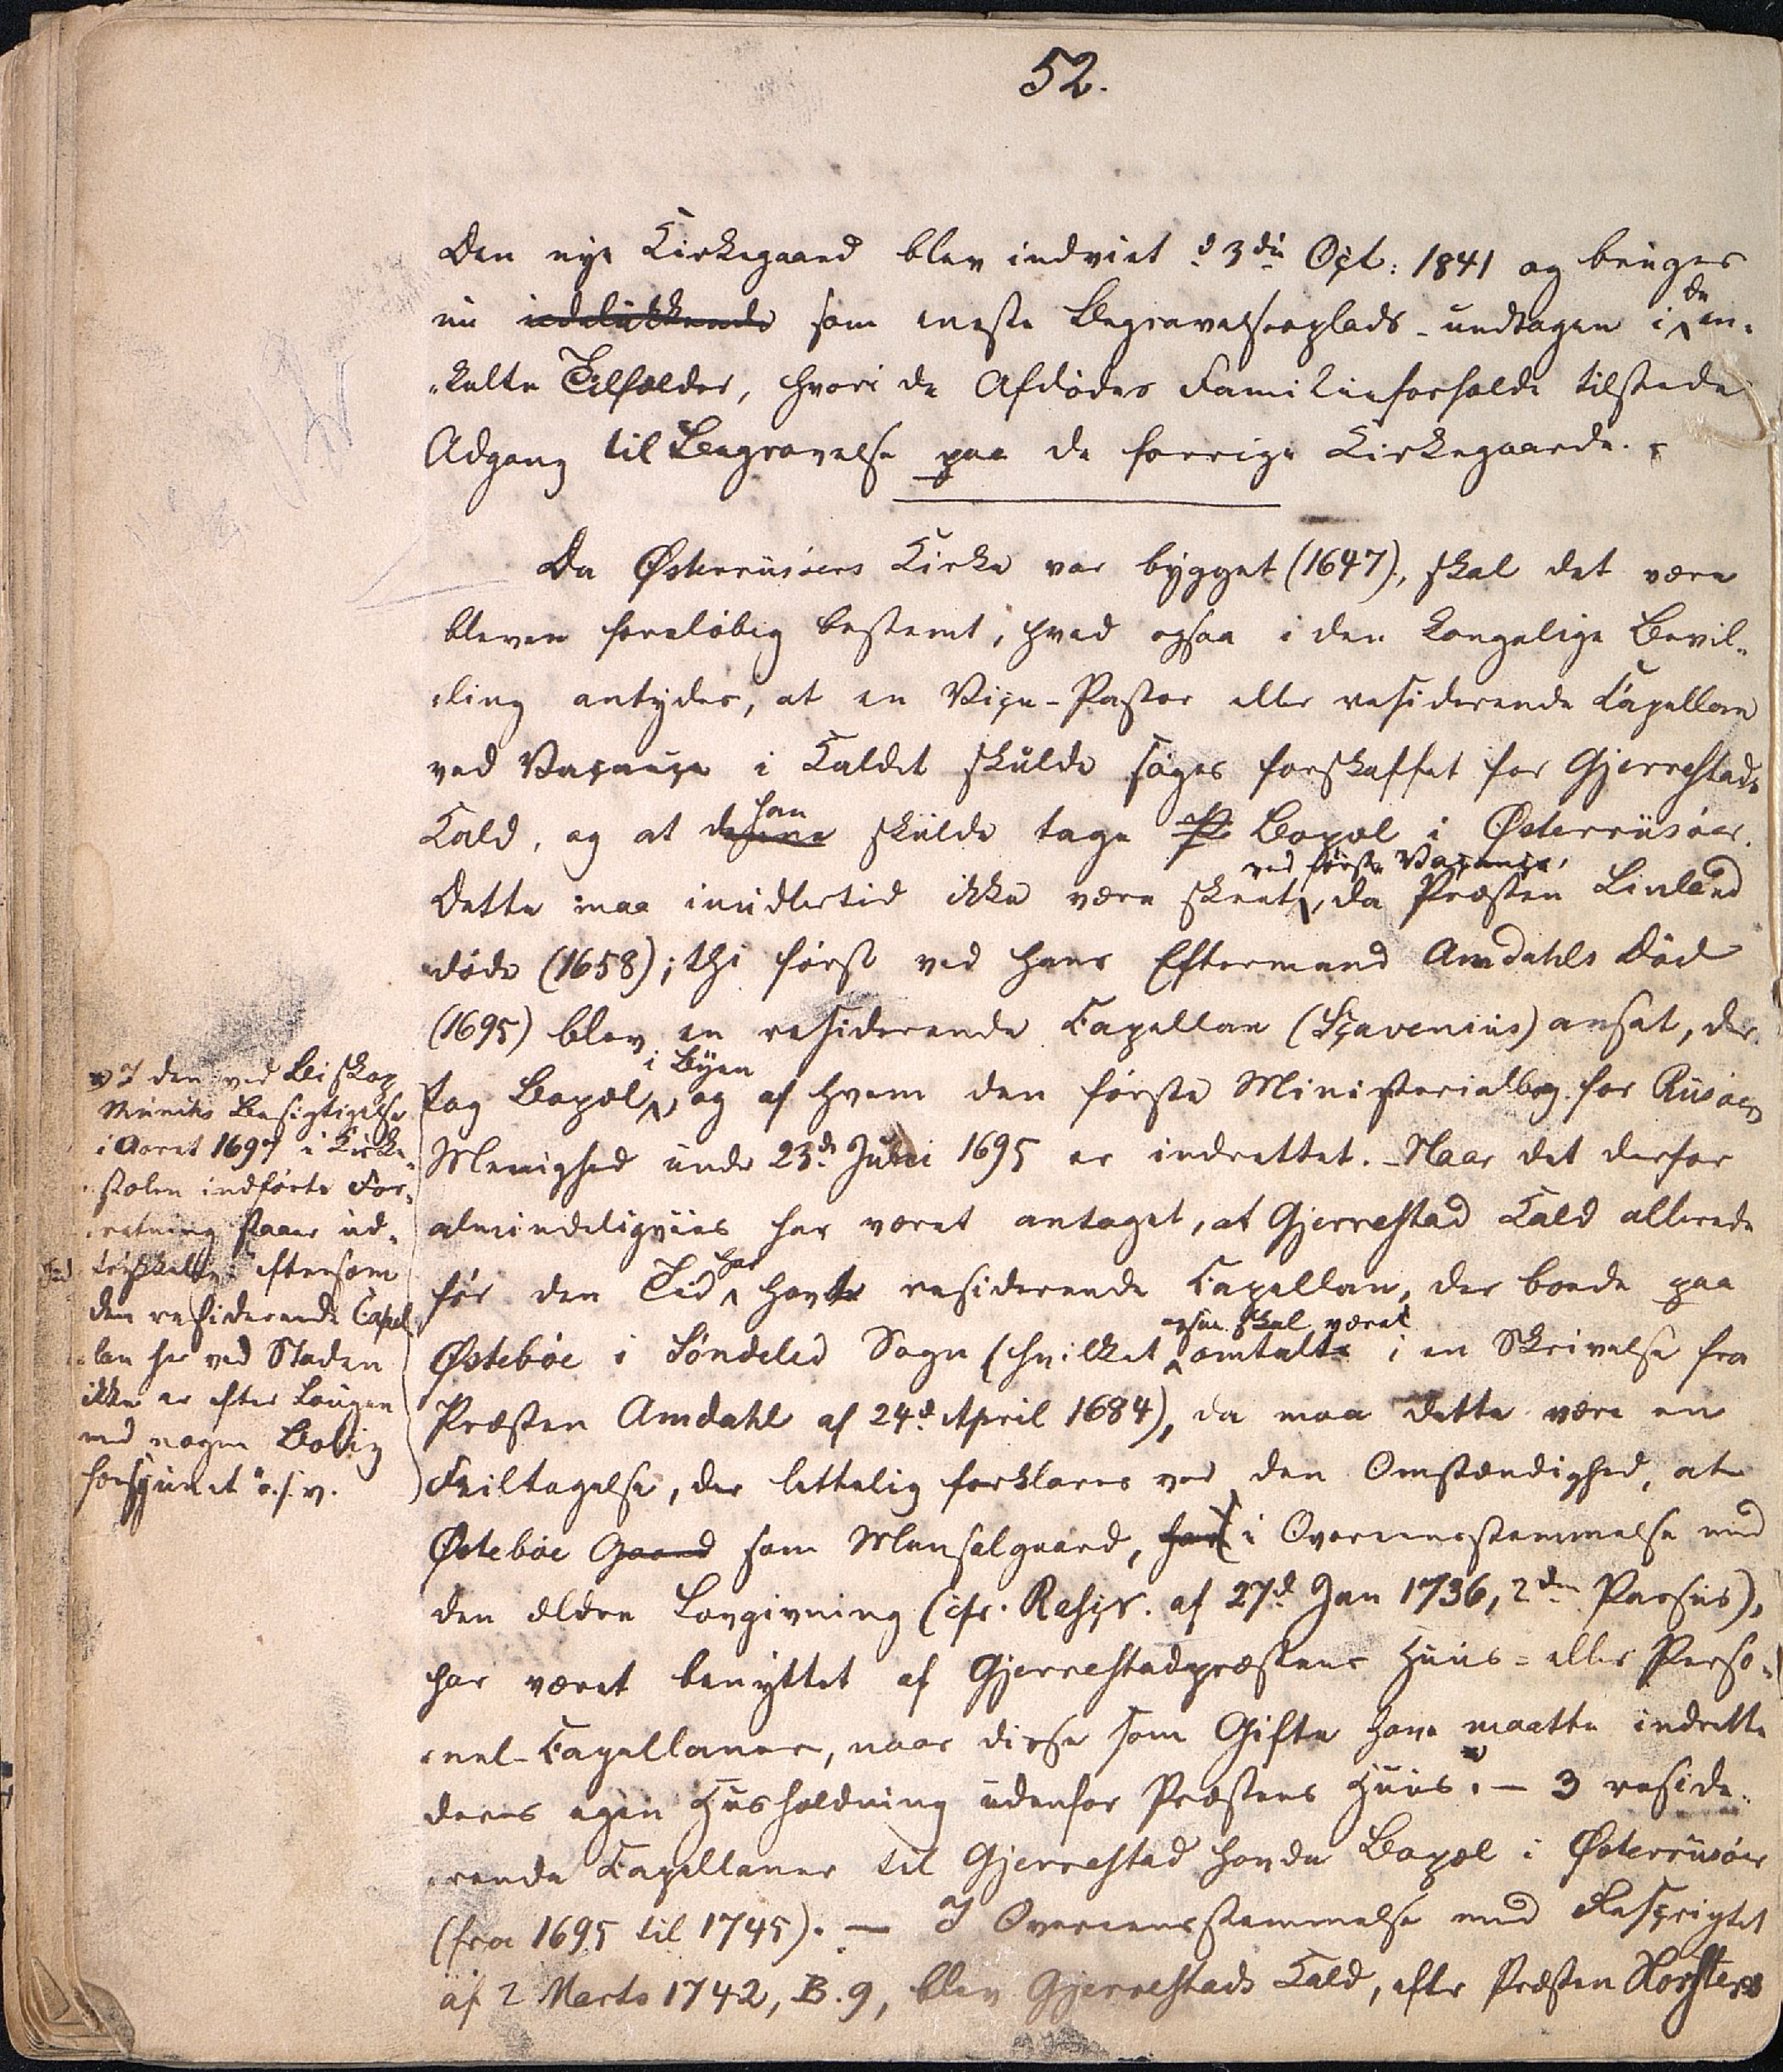 52.
Den nye Kirkegaard blev indviet d 3die Oct: 1841 og bruges
nu udelukkende som eneste Begravelsesplads - undtagen i de en-
kelte Tilfælder, hvori de Afdødes Familieforholde tilstede
Adgang til Begravelse paa de forrige Kirkegaarde. -
Da Østerriisøers Kirke var bygget (1647), skal det være
bleven foreløbig bestemt, hvad ogsaa i den kongelige Bevil-
ling antydes, at en Vice-Pastor eller residerende Capellan
ved Vacance i Kaldet skulde søges forskaffet for Gjerrestads
Kald, og at denne han skulde tage P Bopæl i Østerriisøer.
ved første Vacance,
Dette maa imidlertid ikke være skeet, da Præsten Linland
døde (1658); thi først ved hans Eftermand Amdahls Død
(1695) blev en residerende Capellan (Scavenius) ansat, der
tog Bopæl i Byen, og af hvem den første Ministerialbog for Riisøers
Menighed under 23d. Juli 1695 er indrettet. - Naar det derfor
almindeligviis har været antaget, at Gjerrestad Kald allerede
før den Tid har havt residerende Capellan, der boede paa
Østebøe i Søndeled Sogn (hvilket ogsaa skal været omtalt i en Skrivelse fra
Præsten Amdahl af 24d. April 1684), da maa dette være en
Feiltagelse, der lettelig forklares ved den Omstændighed, at
Østebøe Gaard som Mensalgaard, har i Overeensstemmelse med
den ældre Lovgivning (cfr. Rescr. af 27d. Jan 1736, 2den Passus),
har været benyttet af Gjerrestadpræstens Huus- eller Perso-
nel-Capellaner, naar disse som Gifte have maatte indrette
deres egen Huusholdning udenfor Præstens Huus. - 3 reside-
rende Capellaner til Gjerrestad havde Bopæl i Østerriisøer
(fra 1695 til 1745). - I Overeensstemmelse med Rescriptet
af 2 Marts 1742, B. 9, blev Gjerrestads Kald, efter Præsten Horsters
I den ved Biskop
Munchs Besigtigelse
i Aaret 1697 i Kirke-
stolen indførte For-
retning staar ud-
trykkelig: eftersom
den residerende Capel
lan her ved Staden
ikke er efter Lougen
med nogen Bolig
forsynet o.s.v.